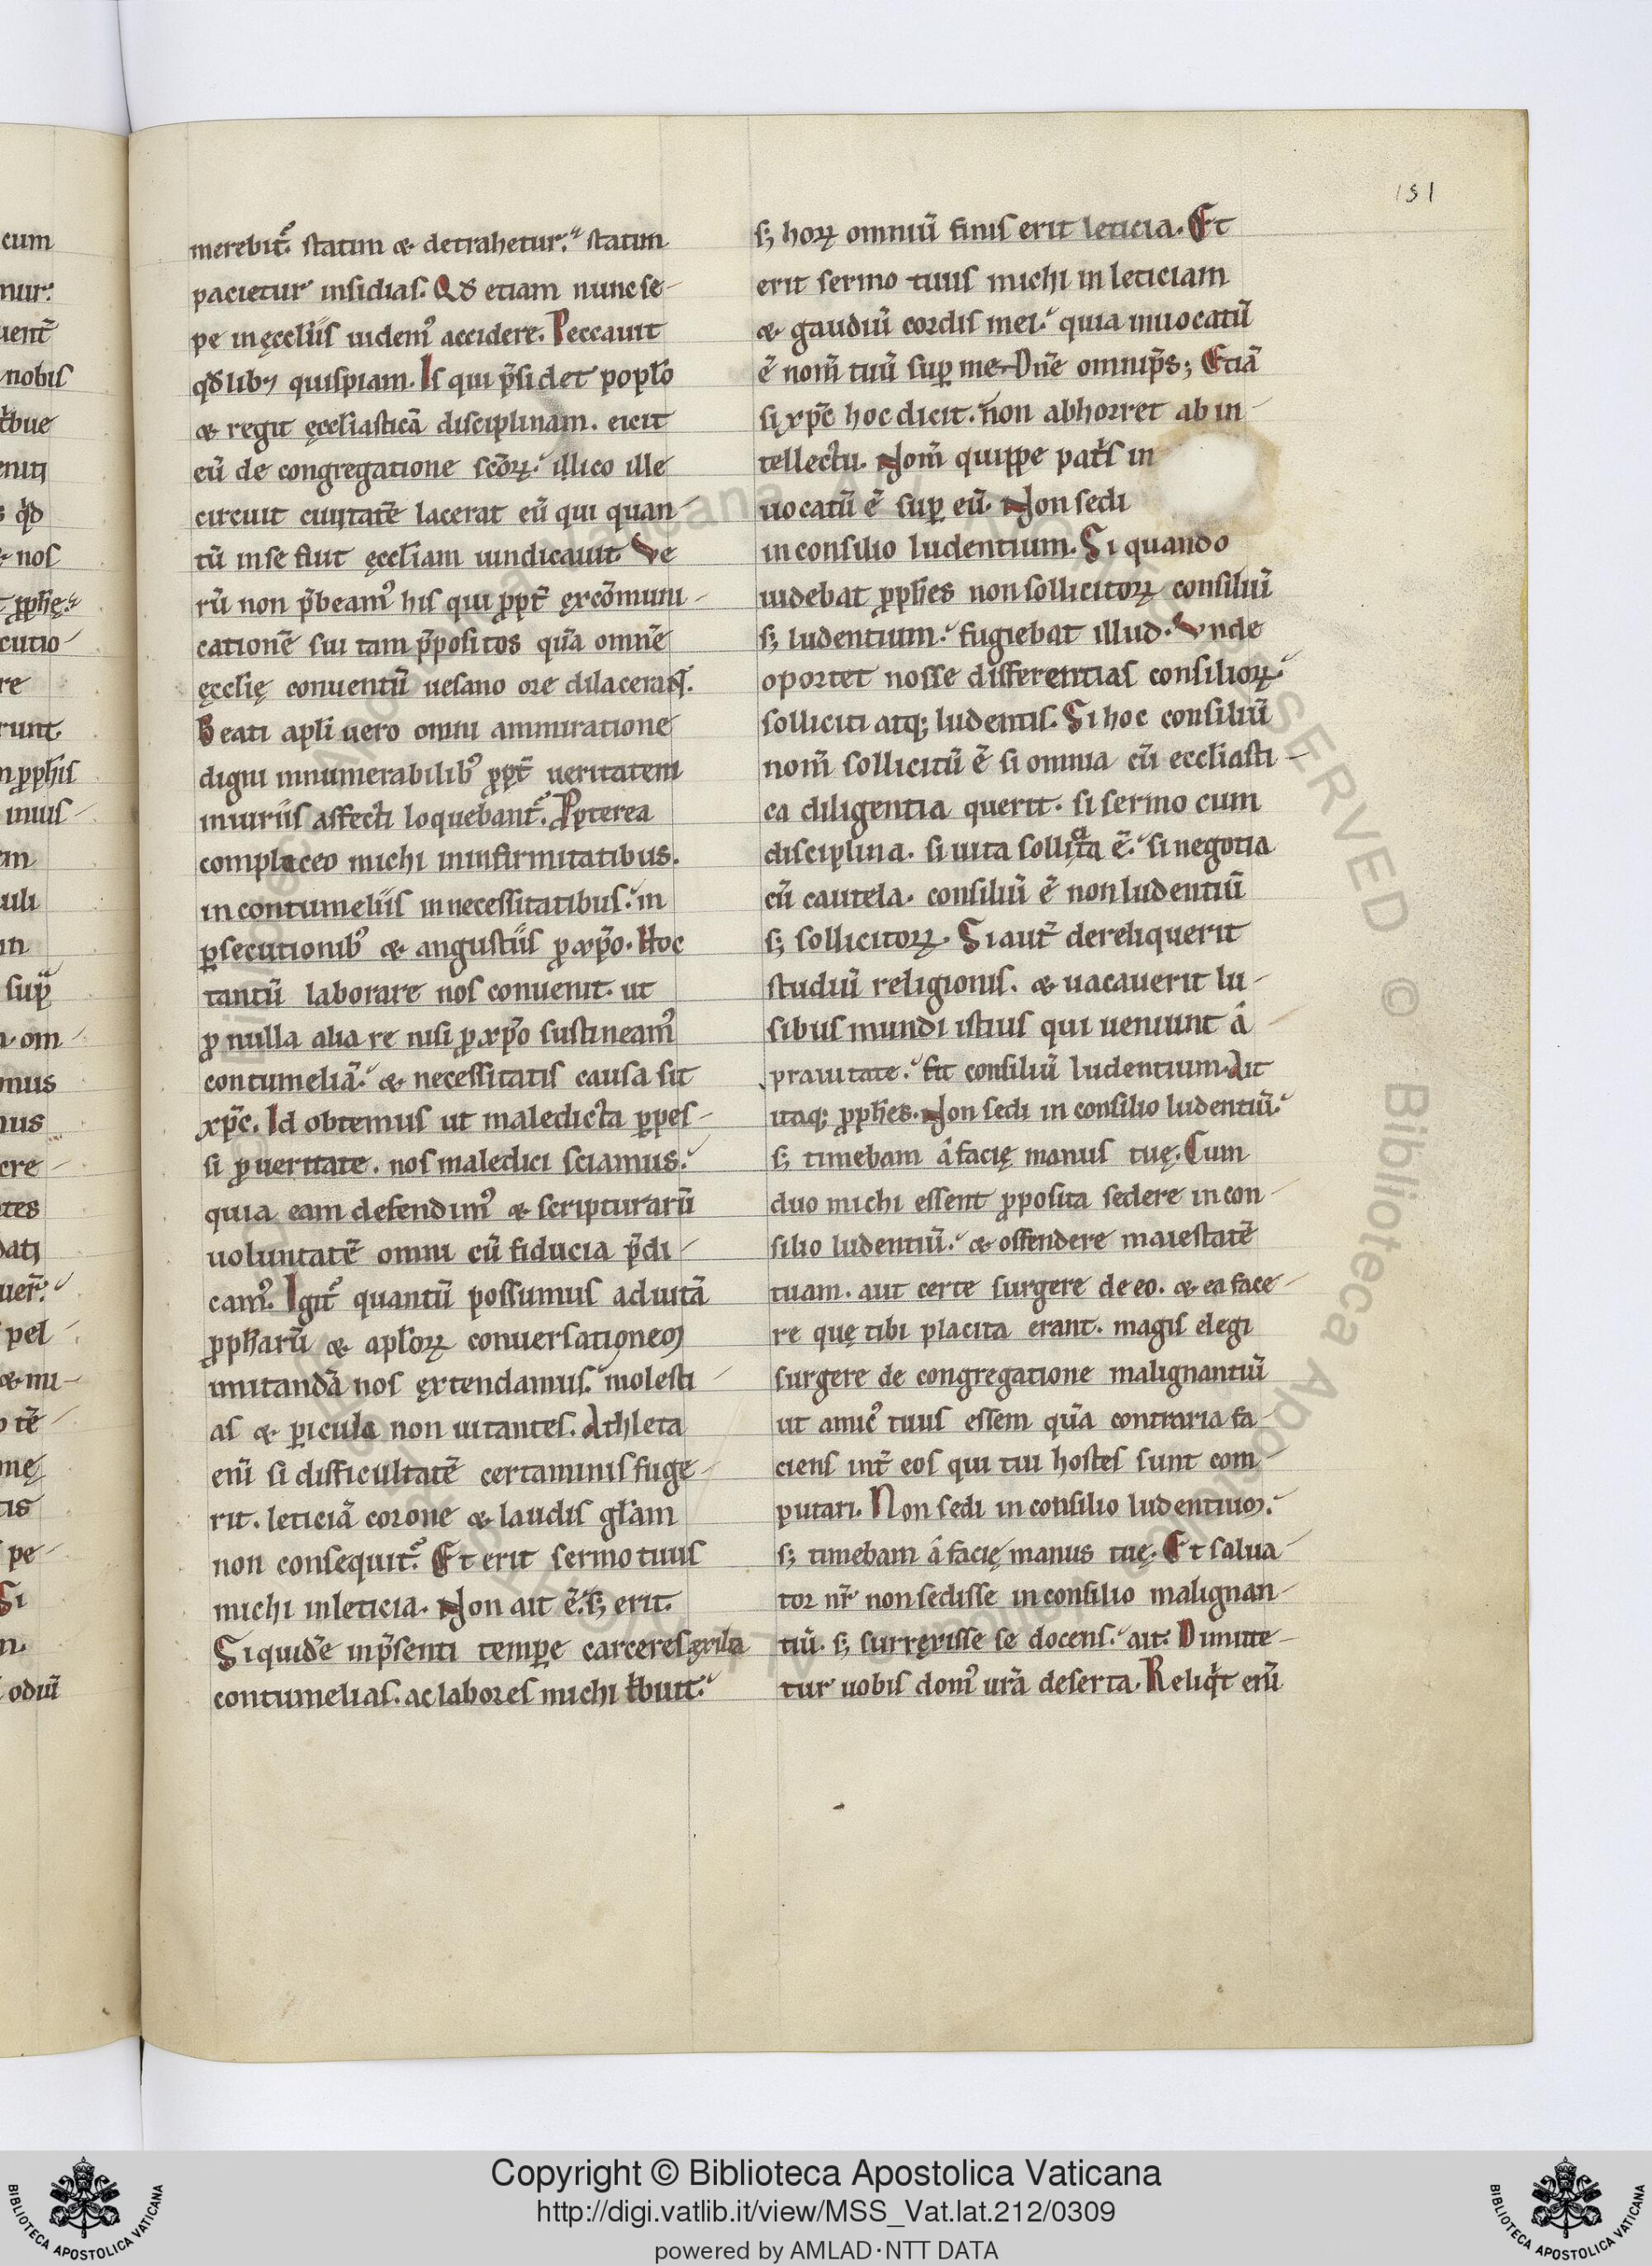 151
merebit᷑. statim & detrahetur. statim
pacietur insidias. Qđ etiam nunc se-
pe in ęccłiis uidem᷒ accidere. Peccauit
qđlibꝫ quispiam. Is qui p̄sidet popło
& regit ęccłiasticā disciplinam. eicit
eū de congregatione scōꝝ. illico ille
circuit ciuitatē lacerat eū qui quan-
tū in se fuit ęccłiam uindicauit. Ve
rū non p̄beam᷒ his qui ꝓpt̄ ęxcōmuni-
cationē sui tam p̄positos quā omnē
ęccłię conuentū uesano ore dilacerant̄.
Beati apłi uero omni ammiratione
digni innumerabilib᷒ ꝓpt̄ ueritatem
iniuriis affecti loquebant᷑. Ꝓpterea
complaceo michi in infirmitatibus.
in contumeliis in necessitatibus. in
ꝑsecutionib᷒ & angustiis ꝓ xp̄o. Hoc
tantū laborare nos conuenit. ut
ꝓ nulla alia re nisi ꝓ xp̄o sustineam᷒
contumeliā. & necessitatis causa sit
xp̄c. Id obtemus ut maledicta ꝑpes-
si ꝓ ueritate. nos maledici sciamus.
quia eam defendim᷒ & scripturarū
uoluntatē omni cū fiducia p̄di-
cam᷒. Igit᷑ quantū possumus ad uitā
ꝓpħarū & apłoꝝ conuersationem
imitandā nos ęxtendamus. molesti-
as & ꝑicula non uitantes. Athleta
enī si difficultatē certaminis fuge-
rit. leticiā corone & laudis głam
non consequit᷑. Et erit sermo tuus
michi in leticia. Non ait ē. sꝫ erit.
Siquidē in p̄senti tempe carceres ęxilia
contumelias. ac labores michi tͥbuit.
sꝫ hoꝝ omniū finis erit leticia. Et
erit sermo tuus michi in leticiam
& gaudiū cordis mei. quia inuocatū
ē nom̄ tuū suꝑ me. Dn̄e omnip̄s; Etiā
si xp̄c hoc dicit. non abhorret ab in-
tellectu. Nom̄ quippe patͥs in
uocatū ē suꝑ eū. Non sedi
in consilio ludentium. Si quando
uidebat ꝓpħes non sollicitoꝝ consiliū
sꝫ ludentium. fugiebat illud. Vnde
oportet nosse differentias consilioꝝ.
solliciti atqꝫ ludentis. Si hoc consiliū
nom̄ sollicitū ē si omnia cū ecclasti-
ca diligentia querit. si sermo cum
disciplina. si uita sollicita ē. si negotia
cū cautela. consiliū ē non ludentiū
sꝫ sollicitoꝝ. Si aut̄ dereliquerit
studiū religionis. & uacauerit lu-
sibus mundi istius qui ueniunt á
prauitate. fit consiliū ludentium. Ait
itaqꝫ ꝓpħes. Non sedi in consilio ludentiū.
sꝫ timebam á facię manus tuę. Cum
duo michi essent ꝓposita sedere in con-
silio ludentiū. & offendere maiestatē
tuam. aut certe surgere de eo. & ea face-
re quę tibi placita erant. magis elegi
surgere de congregatione malignantiū
ut amic᷒ tuus essem quā contraria fa-
ciens int̄ eos qui tui hostes sunt com-
putari. Non sedi in consilio ludentium.
sꝫ timebam á facię manus tuę. Et salua-
tor nr̄ non sedisse in consilio malignan-
tiū. sꝫ surręxisse se docens. ait. Dimitte-
tur uobis dom᷒ ur̄a deserta. Reliqͥt enī
Copyright © Biblioteca Apostolica Vaticana
http://digi.vatlib.it/view/MSS_Vat.lat.212/0309
powered by AMLAD·NTT DATA
BIBLIOTECA APOSTOLICA VATICANA
BIBLIOTECA APOSTOLICA VATICANA